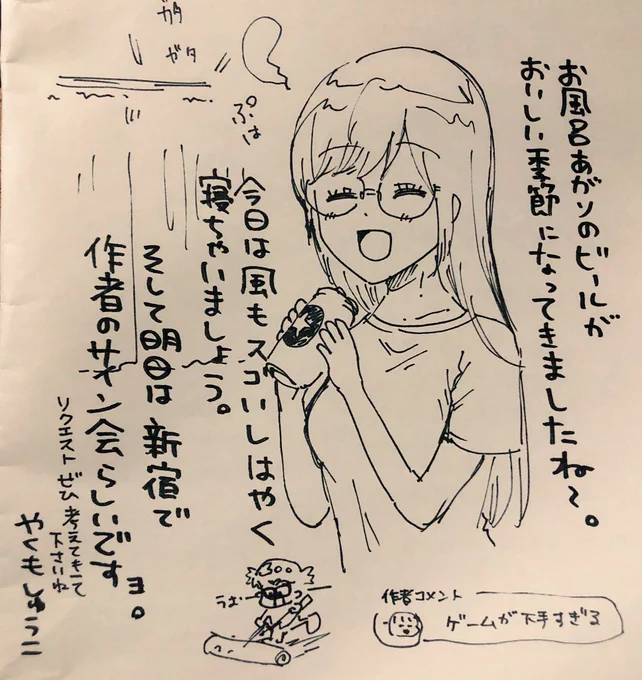 お風呂あがりのビールが
おいしい季節になってきましたね〜。
ガタ
ガタ
ぷは
今日は風もスゴいしはやく
寝ちゃいましょう。
そして明日は新宿で
作者のサイン会らしいですョ。
リクエストぜひ考えてきて
下さいね
やくもしゅうこ
うおー
作者コメント
ゲームが下手すぎる